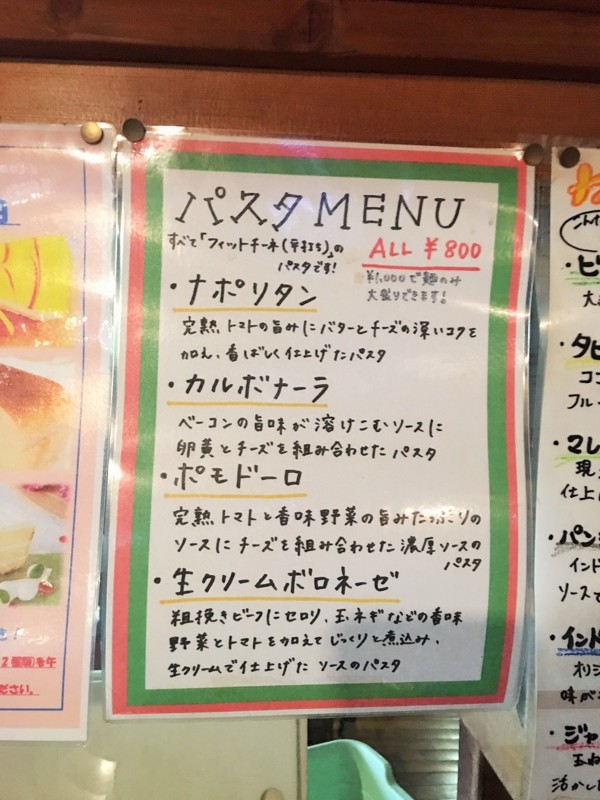 パスタMENU
すべて「フィットチーネ(平打ち)」の
パスタです!
ALL ¥800
¥1,000で麺のみ
大盛りできます!
・ナポリタン
完熟トマトの旨みにバターとチーズの深いコクを
加え、香ばしく仕上げたパスタ
・カルボナーラ
ベーコンの旨味が溶けこむソースに
卵黄とチーズを組み合わせたパスタ
・ポモドーロ
完熟トマトと香味野菜の旨みたっぷりの
ソースにチーズを組み合わせた濃厚ソースの
パスタ
・生クリームボロネーゼ
粗挽きビーフにセロリ、玉ネギなどの香味
野菜とトマトを加えてじっくりと煮込み、
生クリームで仕上げたソースのパスタ
・ビ
大
・タピ
ココ
フル
・マレ
現
仕上
・パン
インド
ソースで
・インド
オリジ
味が
・ジャ
玉ね
活かし